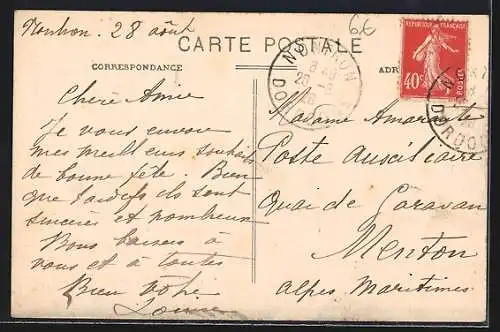 Nontron, 28 août
6€
CARTE POSTALE
CORRESPONDANCE
ADR
RÉPUBLIQUE FRANÇAISE
40c
POSTES
NONTRON
DORDOGNE
Chère Amie
Je vous envoie
mes meilleurs souhaits
de bonne fête. Bien
que tardifs ils sont
sincères et nombreux
Bons baisers à
vous et à toutes
Bien votre
Louise
Madame Amarante
Poste Auxiliaire
Quai de Garavan
Menton
Alpes Maritimes